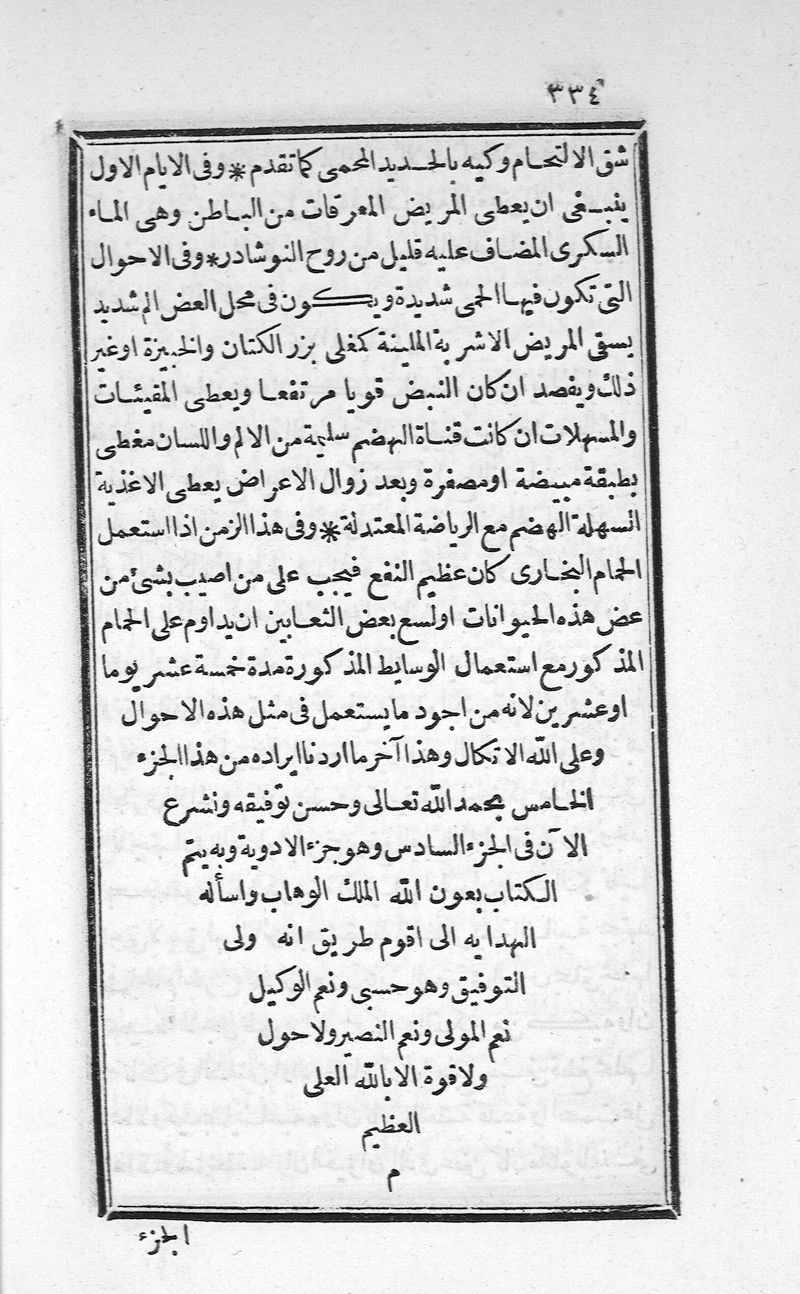 ٣٣٤
شق الالتحام وكيه بالحديد المحمى كما تقدم * وفى الايام الاول
ينبغى ان يعطى المريض المعرقات من الباطن وهى الماء
السكرى المضاف عليه قليل من روح النوشادر * وفى الاحوال
التى تكون فيها الحمى شديدة ويكون فى محل العض الم شديد
يسقى المريض الاشربة الملينة كمغلى بزر الكتان والخبيزة اوغير
ذلك ويفصد ان كان النبض قويا مرتفعا ويعطى المقيئات
والمسهلات ان كانت قناة الهضم سليمة من الالم واللسان مغطى
بطبقة مبيضة او مصفرة وبعد زوال الاعراض يعطى الاغذية
السهلة الهضم مع الرياضة المعتدلة * وفى هذا الزمن اذا استعمل
الحمام البخارى كان عظيم النفع فيجب على من اصيب بشئ من
عض هذه الحيوانات اولسع بعض الثعابين ان يداوم على الحمام
المذكور مع استعمال الوسايط المذكورة مدة خمسة عشر يوما
اوعشرين لانه من اجود ما يستعمل فى مثل هذه الاحوال
وعلى الله الاتكال وهذا آخر ما اردنا ايراده من هذا الجزء
الخامس بحمد الله تعالى وحسن توفيقه ونشرع
الآن فى الجزء السادس وهو جزء الادوية وبه يتم
الكتاب بعون الله الملك الوهاب واسأله
الهدايه الى اقوم طريق انه ولى
التوفيق وهو حسبى ونعم الوكيل
نعم المولى ونعم النصير ولاحول
ولاقوة الا بالله العلى
العظيم
م
الجزء